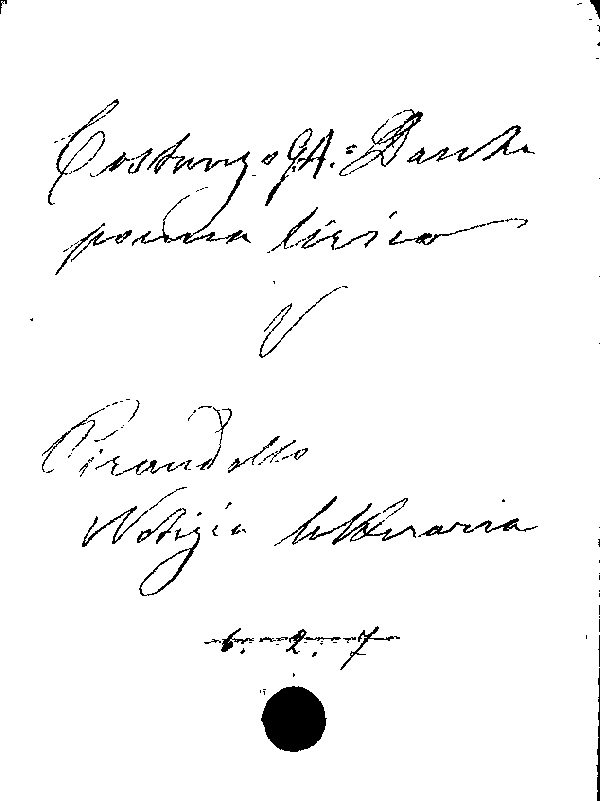 Costanzo G.A. = Dante
poema lirico
V
Pirandello
Notizia letteraria
6. 2. 7